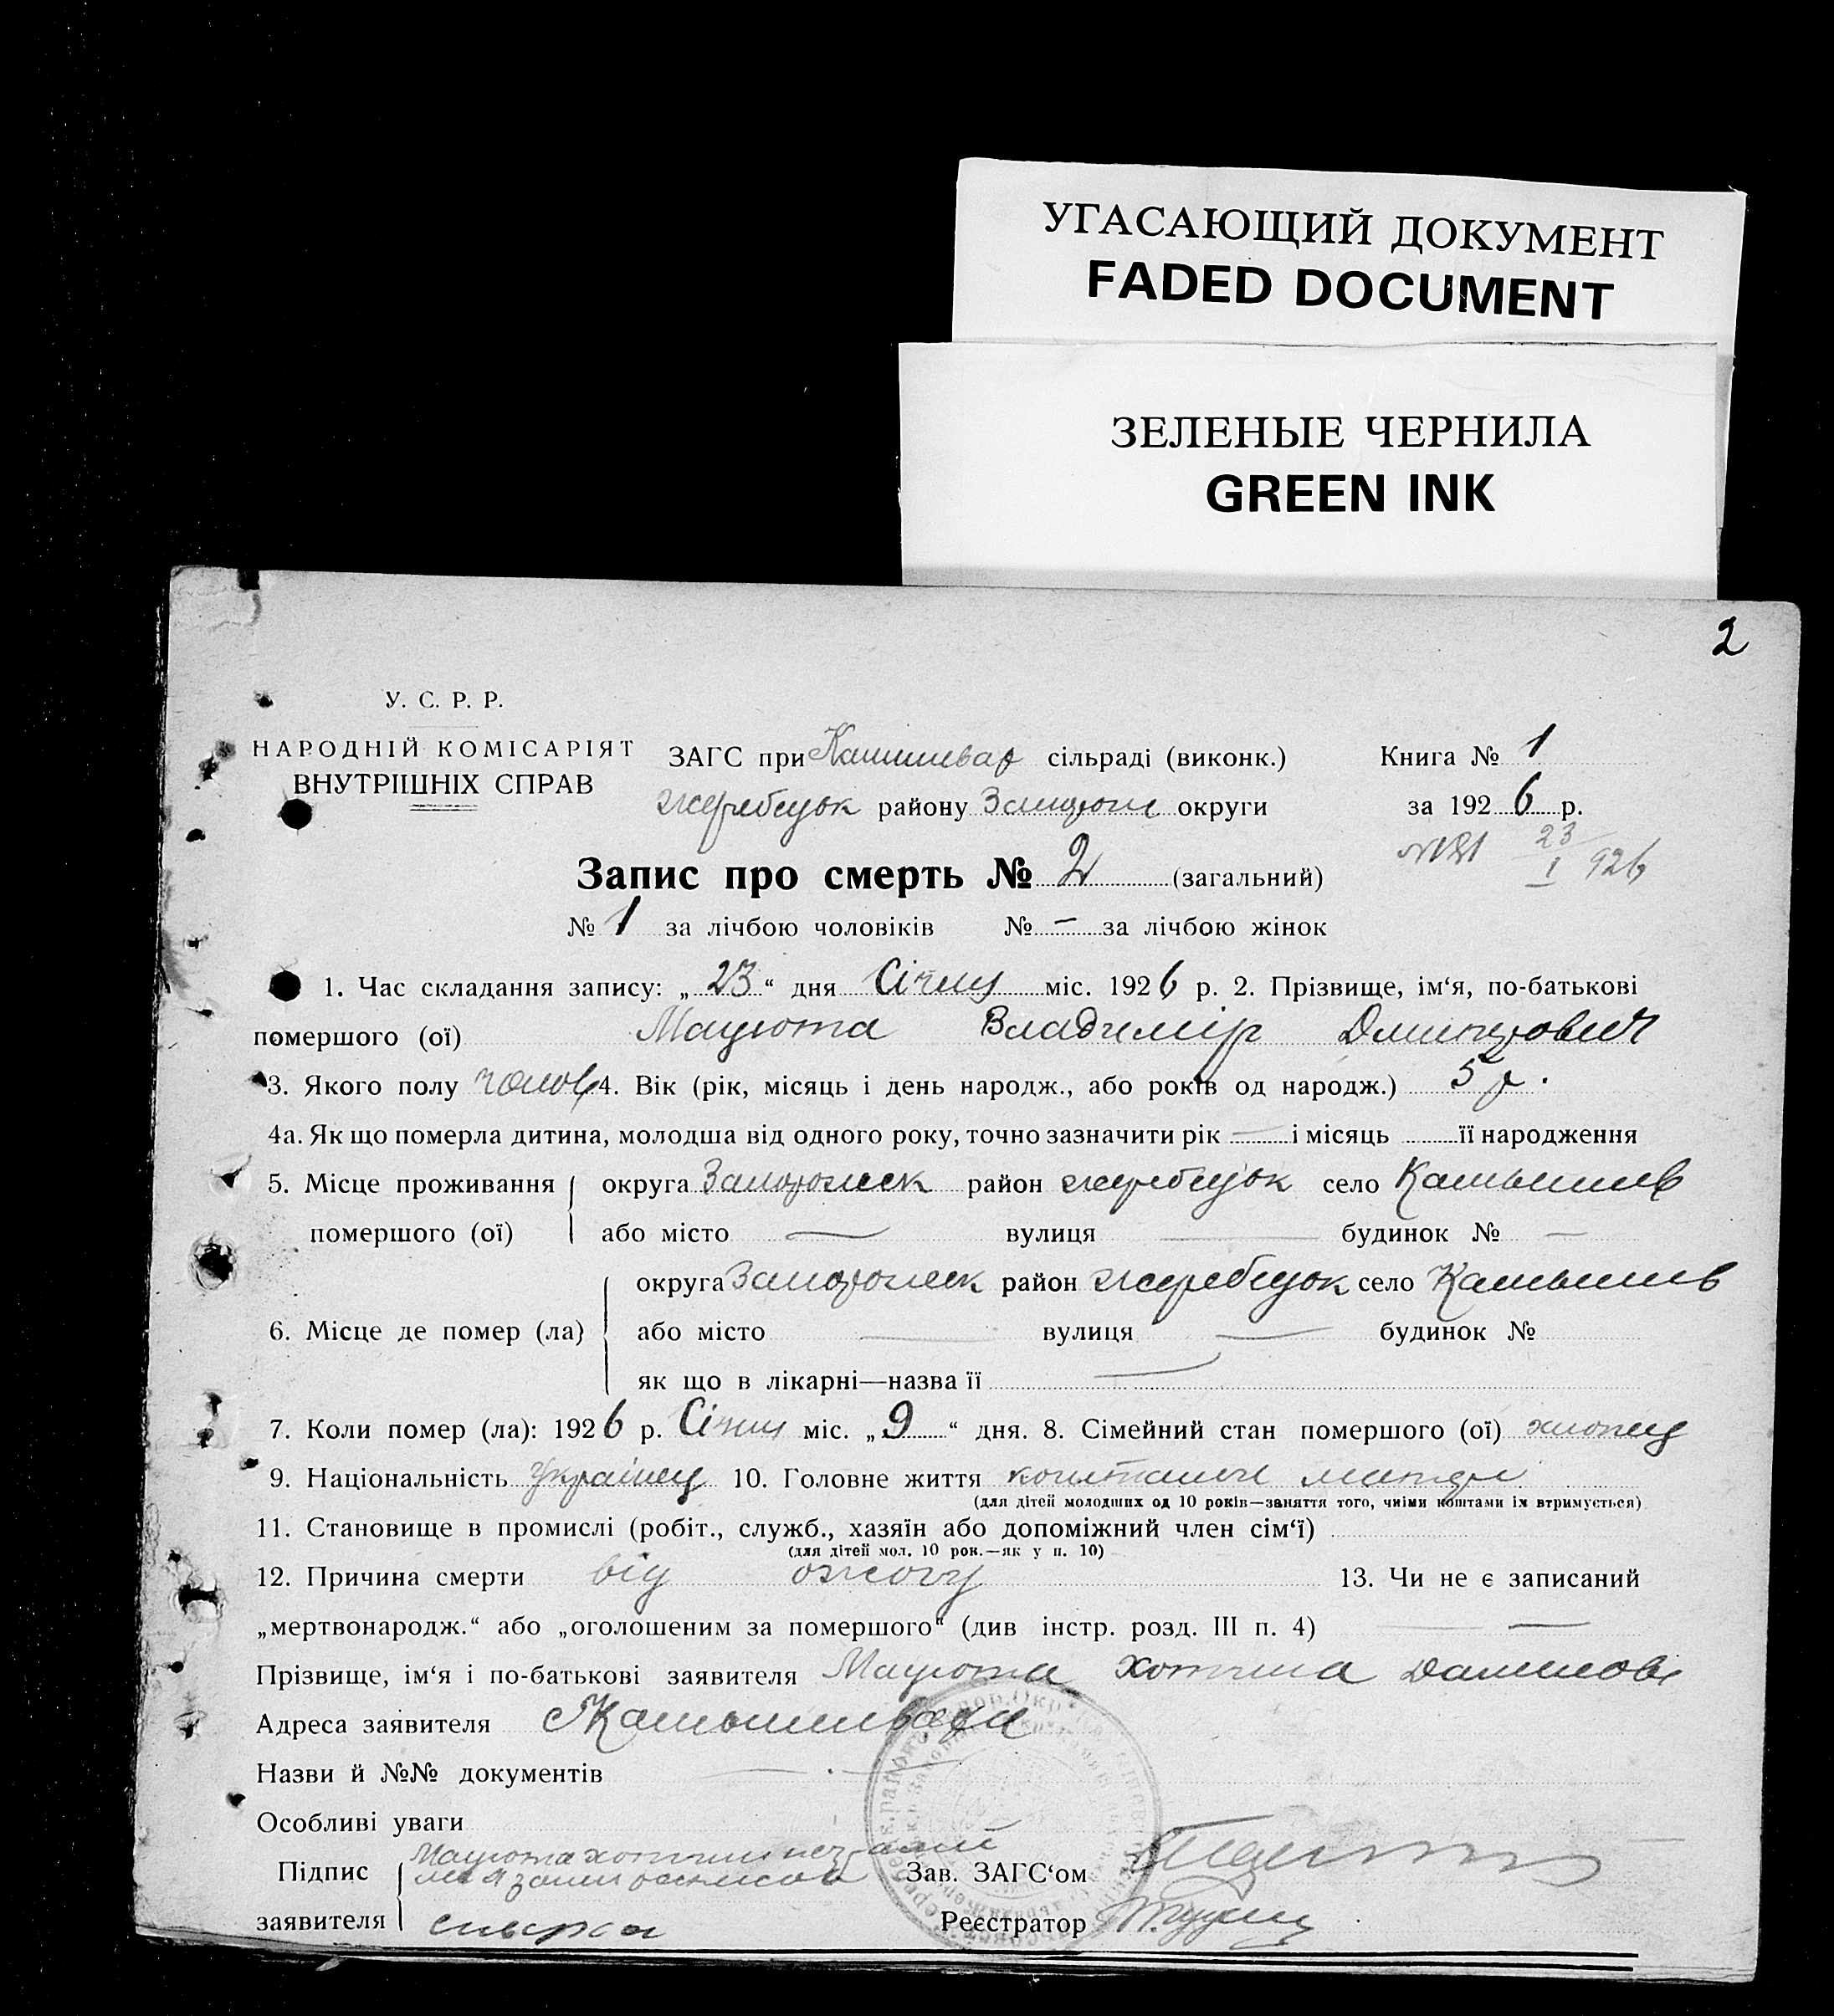 УГАСАЮЩИЙ ДОКУМЕНТ
FADED DOCUMENT
ЗЕЛЕНЫЕ ЧЕРНИЛА
GREEN INK
2
У. С. Р. Р.
НАРОДНІЙ КОМІСАРІЯТ
ВНУТРІШНІХ СПРАВ
ЗАГС при Камишеват сільраді (виконк.)
Книга № 1
жеребецьк району Запорож округи
за 192 6 р.
23/I 926
Запис про смерть № 2 (загальний)
№ 1 за лічбою чоловіків № – за лічбою жінок
1. Час складання запису: „ 23 “ дня Січня міс. 192 6 р. 2. Прізвище, ім‘я, по-батькові
помершого (ої) Мацюта Владимір Дмитрович
3. Якого полу чолов 4. Вік (рік, місяць і день народж., або років од народж.) 5 р.
4а. Як що померла дитина, молодша від одного року, точно зазначити рік — і місяць її народження
5. Місце проживання округа Запорожськ район жеребецьк село Камышев
помершого (ої) або місто — вулиця — будинок № —
округа Запорожськ район жеребецьк село Камышев
6. Місце де помер (ла) або місто — вулиця — будинок №
як що в лікарні—назва її —
7. Коли помер (ла): 192 6 р. Січня міс. „ 9 “ дня. 8. Сімейний стан помершого (ої) хлопец
9. Національність Українец 10. Головне життя коштами матери
(для дітей молодших од 10 років—заняття того, чиїми коштами їх втримується)
11. Становище в промислі (робіт., служб., хазяїн або допоміжний член сім‘ї)
(для дітей мол. 10 рок.—як у п. 10)
12. Причина смерти від ожогу 13. Чи не є записаний
„мертвонародж.“ або „оголошеним за помершого“ (див інстр. розд. III п. 4) —
Прізвище, ім‘я і по-батькові заявителя Мацюта Данилов
Адреса заявителя с Камышеваха
Назви й №№ документів —
Особливі уваги
Підпис Мацюта
Зав. ЗАГС‘ом
заявителя
Реєстратор